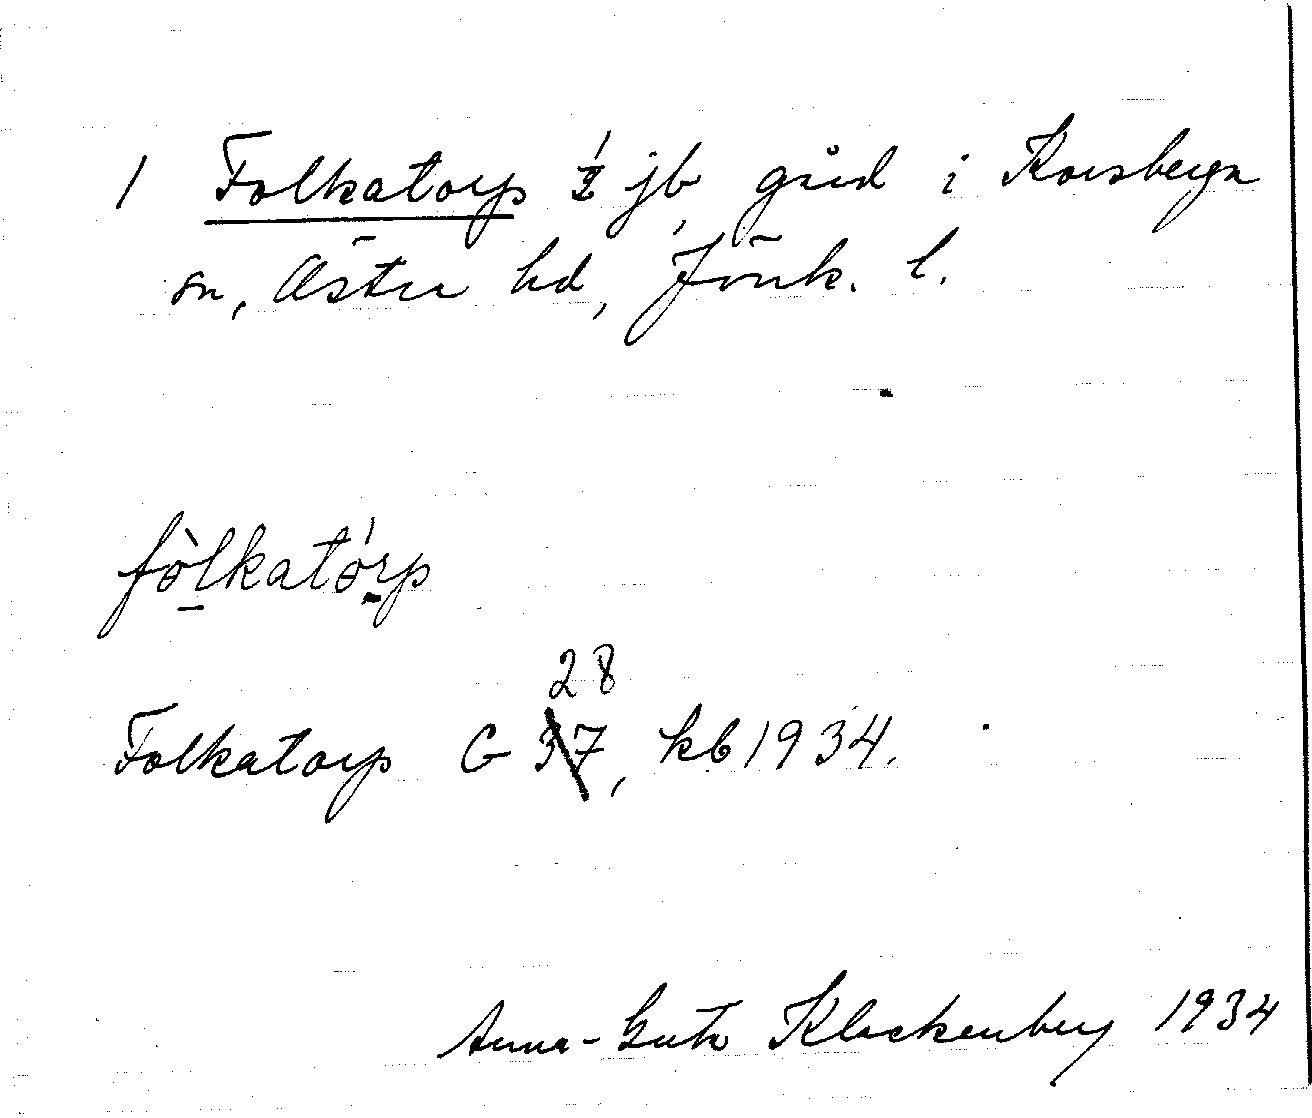 1 Folkatorp ½ jb, gård i Korsberga
sn, Östra hd, Jönk. l.
fòlkatórp
28
Folkatorp G 37, kb 1934.
Anna-Greta Klockenberg 1934